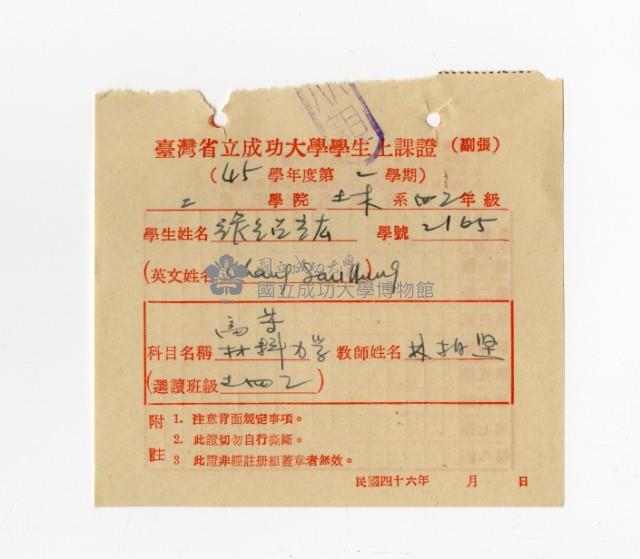 臺灣省立成功大學學生上課證（副張）
（45學年度第二學期）
工學院 土木系四乙年級
學生姓名 學號 2165
（英文姓名 Chang Sau Hung）
國立成功大學
國立成功大學博物館
高等
科目名稱 材料力學 教師姓名 林柏堅
（選讀班級 土四乙）
附註
1. 注意背面規定事項。
2. 此證切勿自行撕斷。
3 此證非經註册組蓋章者無效。
民國四十六年 月 日